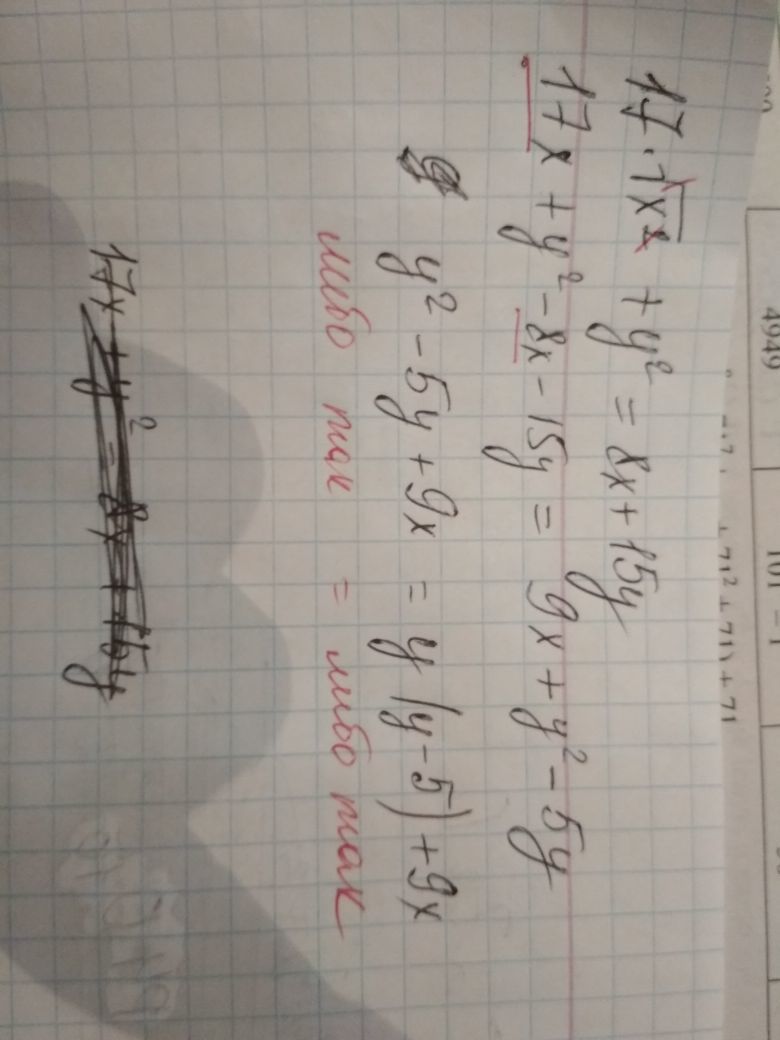 17·√x² + y² = 8x + 15y
17x + y² - 8x - 15y = 9x + y² - 5y
y² - 5y + 9x = y(y-5) + 9x
либо так = либо так
17x + y² = 8x + 15y
4949
101
71² + 71) + 71